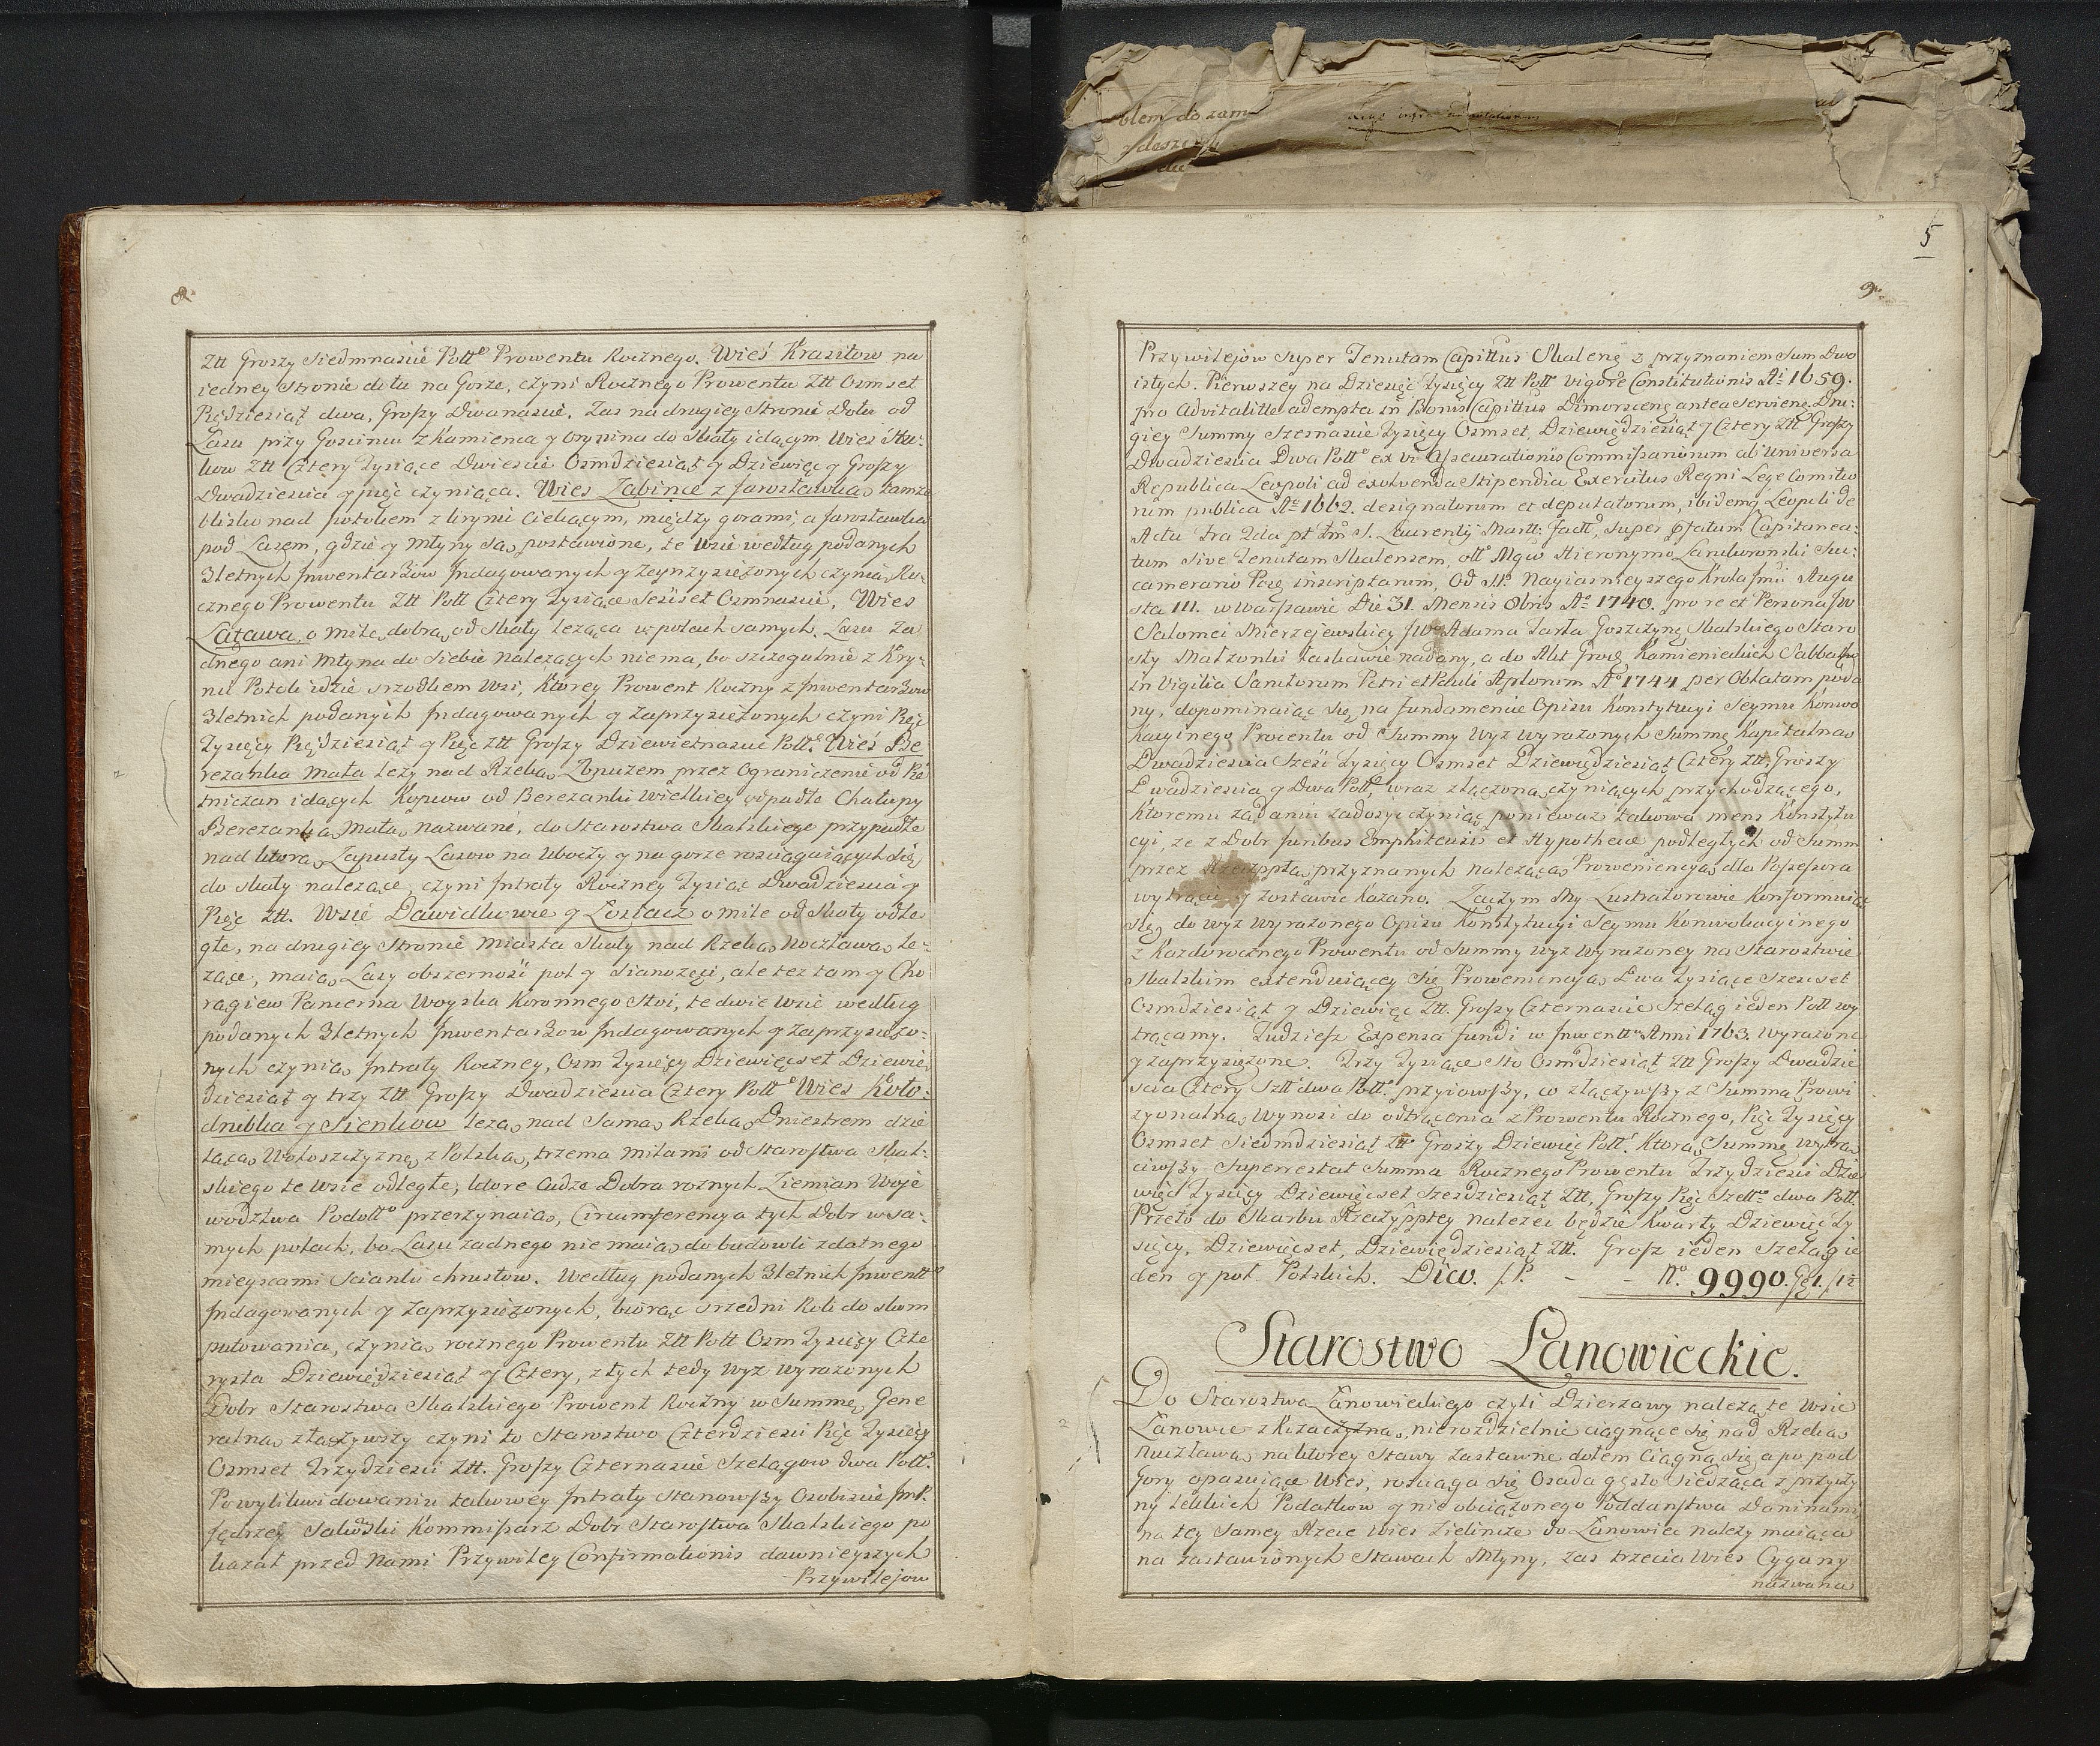 8.
Ztt Groszy Siedmnascie Poltt Prowentu Rocznego. Wieś Krasitow na
iedney Stronie dołu na Gorze, czyni Rocznego Prowentu Ztt Osmset
Pięćdziesiąt dwa, Groszy Dwanascie. Zas na drugiey Stronie Dołu od
Lasu przy Goscincu z Kamienca y Orynina do Skały idącym Wieś
kow Ztt Cztery Tysiące Dwiescie Osmdziesiąt y Dziewięć y Groszy
Dwadziescia y pięć czyniąca. Wies Zabince z Jarosławką tamże
blisko nad potokiem z krynic Ciekącym, między gorami, a Jarosławka
pod Lasem, gdzie y Młyny są postawione, te wsie według podanych
3letnych Inwentarzow Indagowanych y Zeprzysiężonych czynią Ro-
cznego Prowentu Ztt Poltt Cztery Tysiące Sescset Osmnascie. Wies
Łatawa, o Milę dobrą od Skały leząca w polach samych. Lasu Za
dnego ani Młyna do Siebie Należących niema, bo szczegulnie z Kry-
nic Potok idzie srzodkiem Wsi, Ktorey Prowent Roczny z Inwentarzow
3letnich podanych Indagowanych y Zaprzysiężonych czyni Pięć
Tysięcy Pięćdziesiąt y Pięć Ztt Groszy Dziewietnascie Poltt. Wieś Be
rezanka Mała leży nad Rzeką Zbruczem przez Ograniczenie od Pie
tniczan idących Kopcow od Berezanki Wielkiey odpadłe Chałupy
Berezanką Małą nazwane, do Starostwa Skalskiego przypadłe
nad ktorą Zapusty Lasow na Uboczy y na gorze rosciągaiących się,
do Skały nalezące, czyni Intraty Roczney Tysiąc Dwadziescia y
Pięć Ztt. Wsie Dawidkowce y Losiacz o mile od Skały odle
głe, na drugiey Stronie Miasta Skały nad Rzeką Niecławą le-
zące, maią Lasy obszernosci pol y Sianozęci, ale tez tam y Cho
rągiew Pancerna Woyska Koronnego Stoi, te dwie wsie według
podanych 3letnych Inwentarzow Indagowanych y Zaprzysiężo-
nych czynią Intraty Roczney, Osm Tysięcy Dziewięcset Dziewię
dziesiąt y trzy Ztt Groszy Dwadziescia Cztery Poltt Wies Koło-
drubka y Sienkow lezą nad Samą Rzeką Dniestrem dzie
lącą Wołoszczyznę z Polską, trzema milami od Starostwa Skal-
skiego te wsie odległe, ktore Cudze Dobra roznych Ziemian Woje
wodztwa Podolto przerzynaią, Circumferencya tych Dobr w sa-
mych polach, bo Lasu zadnego nie maią do budowli zdatnego
mieyscami Scianki chrustow. Według podanych 3letnich Inwentt
Indagowanych y Zaprzysiężonych, biorąc srzedni Rok do skom
putowania, czynią rocznego Prowentu Ztt Poltt Osm Tysięcy Czte
rysta Dziewiędziesiąt y Cztery, z tych tedy wyz wyrazonych
Dobr Starostwa Skalskiego Prowent Roczny w Summę Gene
ralną złączywszy czyni to Starostwo Czterdziesci Pięć Tysięcy
Osmset Trzydziesci Ztt. Groszy Czternascie Szelągow dwa Poltt.
Po wylikwidowaniu takowey Intraty Stanowszy Osobiscie Imć
Jędrzey Kommissarz Dobr Starostwa Skalskiego po
kazał przed Nami Przywiley Confirmationis dawnieyszych
Przywilejow
5
9.
Przywilejow Super Tenutam Capittus Skalenę z przyznaniem Sum Dwo
istych. Pierwszey na Dziesięć Tysięcy Ztt Poltt vigore Constitutionis Ai 1659.
pro advitalitte adempta in Bonis Capittus antea servienę. Dru-
giey Summy Szesnascie Tysięcy Osmset, Dziewiędziesiąt y Cztery Ztt Groszy
Dwadziescia Dwa Poltt ex vi Assecurationis Commissariorum ab Universa
Republica Leopoli ad exolvenda Stipendia Exercitus Regni Lege Comitio
rum publica Ao 1662. designatorum et deputatorum, ibidemq Leopoli de
Actu S. Laurentij Martt. Super Capitanea-
tum Sive Tenutam Skalensem, Hieronymo Lanckoronski Suc-
camerario inscriptarum, Od Nayiasnieyszego Krola Jmci Augu
sta III. w Warszawie Die 31. Mensis 8bris Ao 1740. pro re et Persona JW
Salomei Mierzejewskiey JWo Adama Tarła Goszczynę Skalskiego Staro
sty Małzonki Łaskawie nadany, a do Akt Grod. Kamienieckich Sabbatho
in Vigilia Sanctorum Petri et Pauli Apłorum Ao 1744 per Oblatam poda
ny, dopominaiąc się na fundamencie Opisu Konstytucyi Seymu Konwo
kacyinego Procentu od Summy Wyz wyrazonych Summę Kapitalną
Dwadziescia Szesc Tysięcy Osmset Dziewiędziesiąt Cztery Ztt, Groszy
Dwadziescia y Dwa Poltt, wraz złączoną czyniących przychodzącego,
Ktoremu zadaniu zadosyć czyniąc poniewaz takowa mens Konstytu
cyi, ze z Dobr Juribus Emphiteusis et Hypothecæ podległych od Summ
przez przyznanych nalezącą Prowenencyą dla Possessora
wytrącic y zostawic kazano. Zaczym My Lustratorowie Konformuiąc
się do wyz wyrazonego Opisu Konstytucyi Seymu Konwokacyinego
z Kazdorocznego Prowentu od Summy wyz wyrazoney na Starostwie
Skalskim extenduiącey się Prowenencyą Dwa Tysiące Szescset
Osmdziesiąt y Dziewięć Ztt. Groszy Czternascie Szeląg ieden Poltt wy
trącamy. Tudziesz Expensa fundi w Inwenttu Anni 1763. wyrazone
y zaprzysięzone. Trzy Tysiące Sto Osmdziesiąt Ztt Groszy Dwadzie
scia Cztery Sztt dwa Poltt. przyiowszy, co złączywszy z Summą Prowi
zyonalną wynosi do odtrącenia z Prowentu Rocznego, Pięć Tysięcy
Osmset Siedmdziesiąt Ztt Groszy Dziewięć Poltt. Ktorą Summę wytrą
ciwszy Superrestat Summa Rocznego Prowentu Trzydziesci Dzie
więć Tysięcy Dziewięcset Szesdziesiąt Ztt, Groszy Pięć Szeltt dwa Poltt
Przeto do Skarbu Rzeczypptey nalezec będzie Kwarty Dziewięć Ty
sięcy, Dziewięcset, Dziewiędziesiąt Ztt. Grosz ieden Szeląg ie
den y pol Polskich. Dico. f.P. - - No. 9990. Gr 1. s 1½
Starostwo Lanowieckie.
Do Starostwa Lanowieckiego czyli Dzierzawy nalezą te wsie
Lanowce z Kozaczyzną, nierozdzielnie ciągnące się nad Rzeką
Nieczławą, na ktorey Stawy zastawne dołem Ciągną się a po pod
Gory opasuiące wies, rosciąga się Osada gęsto Siedząca z przyczy
ny lekkich Podatkow y nie obciązonego Poddanstwa Daninami
na tey Samey Rzece wies Zielincze do Lanowiec nalezy maiąca
na zastawionych Stawach Młyny, zas trzecia wies Cygany
nazwana